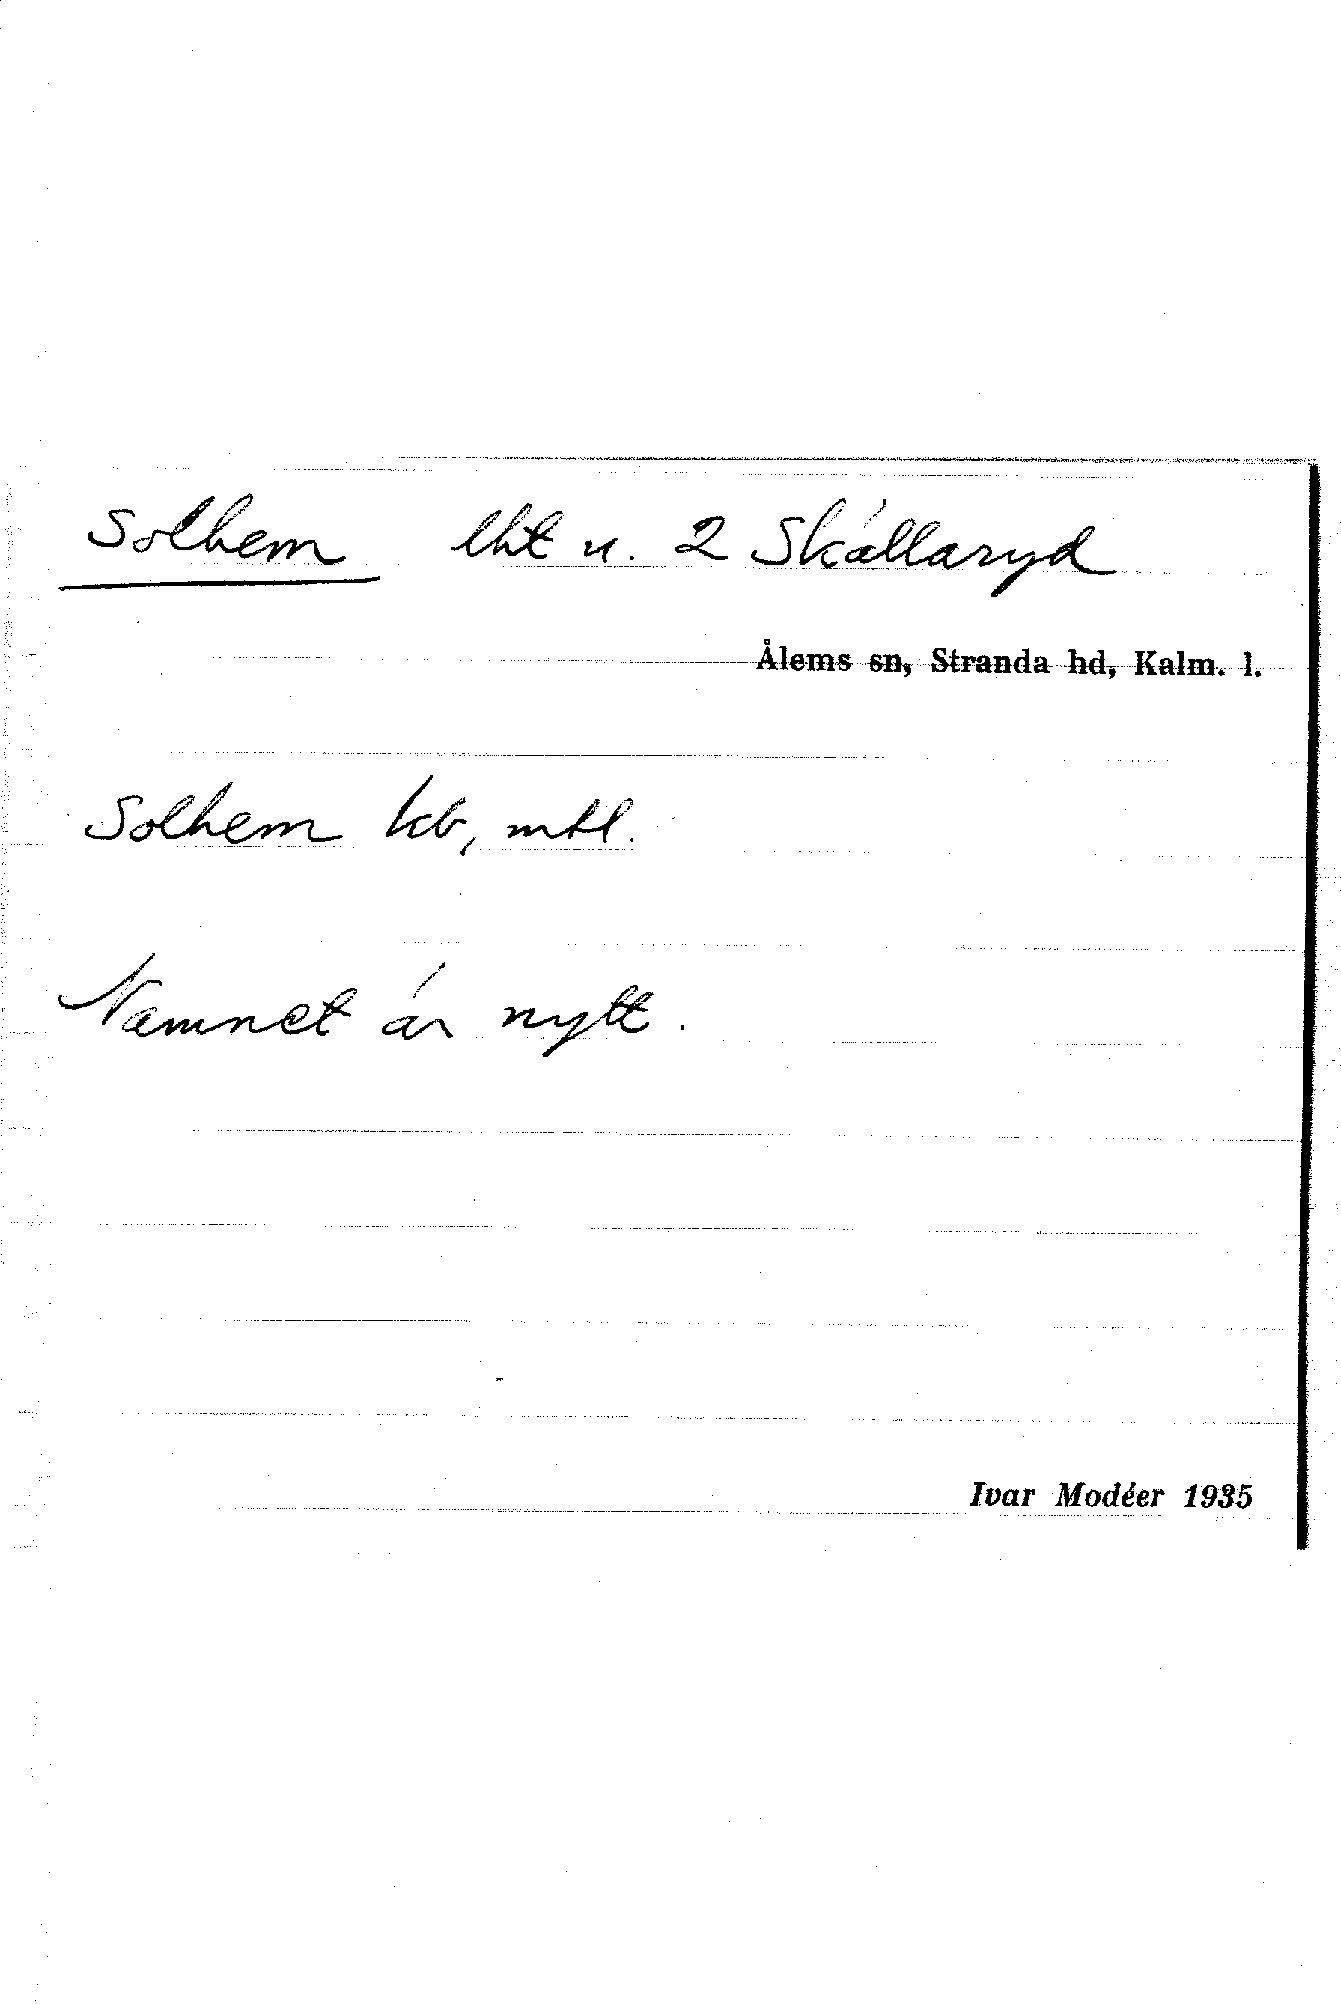 Solhem lht u. 2 Skällaryd
Ålems sn, Stranda hd, Kalm. l.
Solhem kb, mtl.
Namnet är nytt.
Ivar Modéer 1935